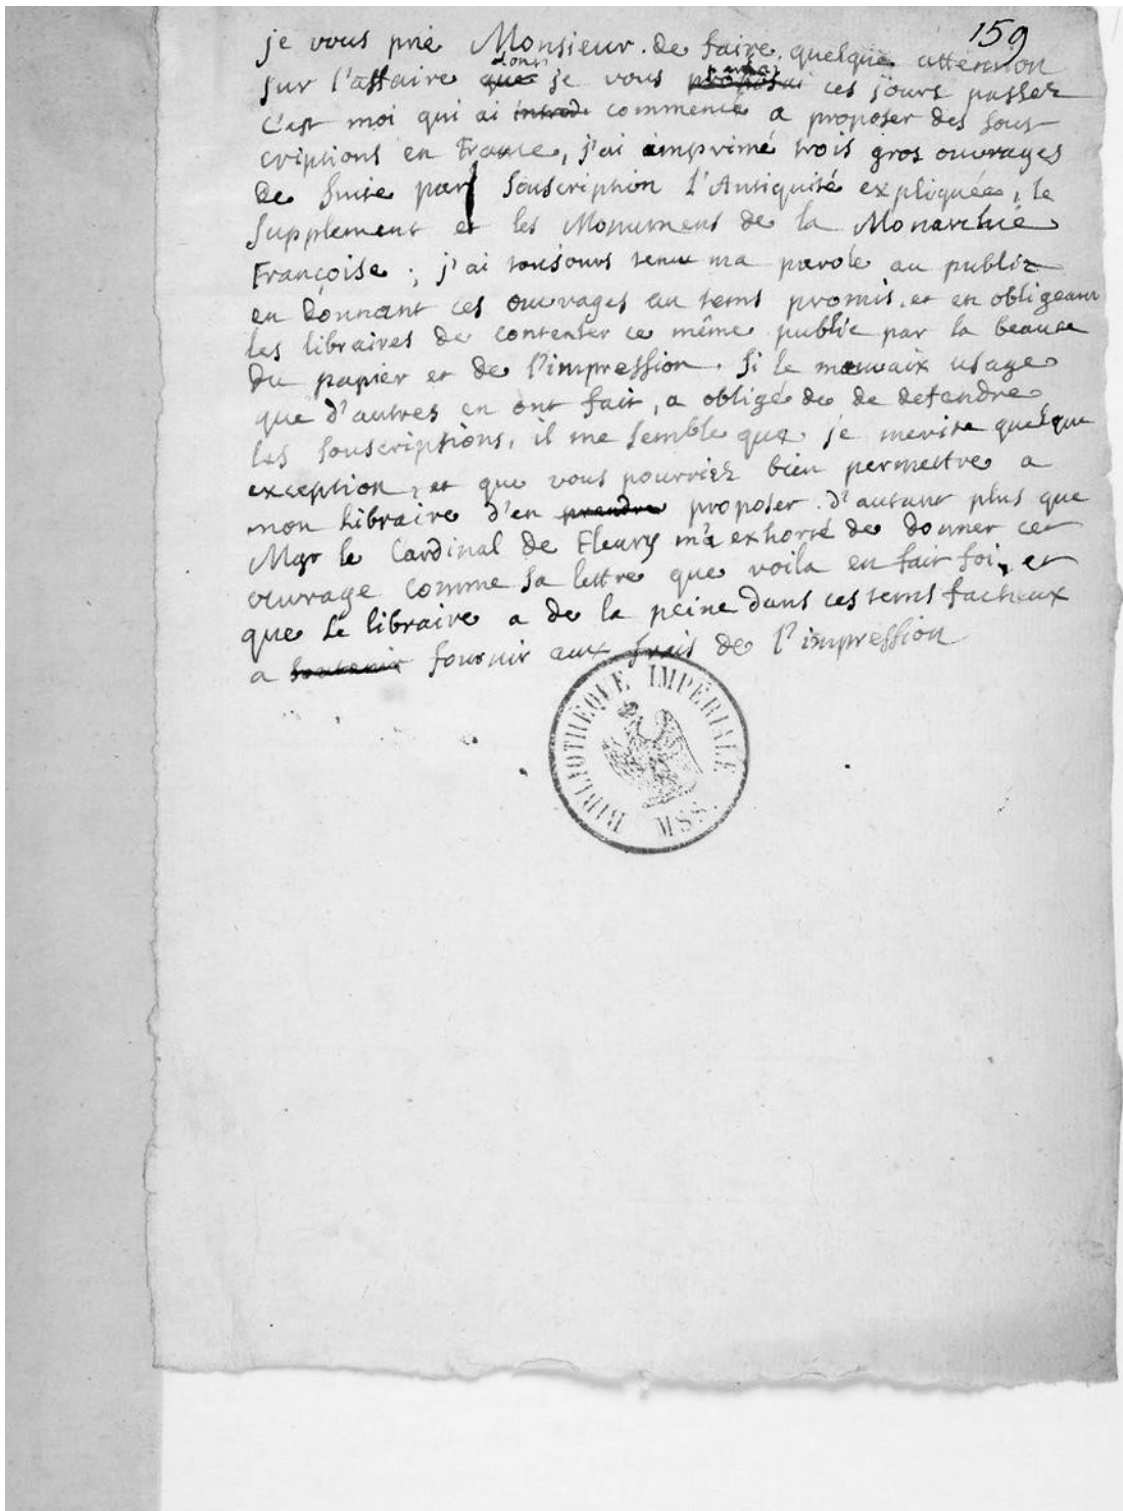 159
je vous prie Monsieur de faire quelque attention
sur l'affaire dont que je vous parlai proposai ces jours passez
c'est moi qui ai introd commencé a proposer des sous
criptions en France, j'ai imprimé trois gros ouvrages
de suite par souscription l'Antiquité expliquée, le
supplement et les Monumens de la Monarchie
Françoise ; j'ai tousjours tenu ma parole au public
en donnant ces ouvrages au tems promis, et en obligeant
les libraires de contenter ce même public par la beauté
du papier et de l'impression. si le mauvaix usage
que d'autres en ont fait, a obligé de de defendre
les souscriptions, il me semble que je merite quelque
exception, et que vous pourriez bien permettre a
mon libraire d'en prendre proposer. d'autant plus que
Mgr le Cardinal de Fleury m'a exhorté de donner cet
ouvrage comme sa lettre que voila en fait foi, et
que le libraire a de la peine dans ces tems facheux
a soutenir fournir aux frais de l'impression
BIBLIOTHÈQUE IMPÉRIALE
MSS.